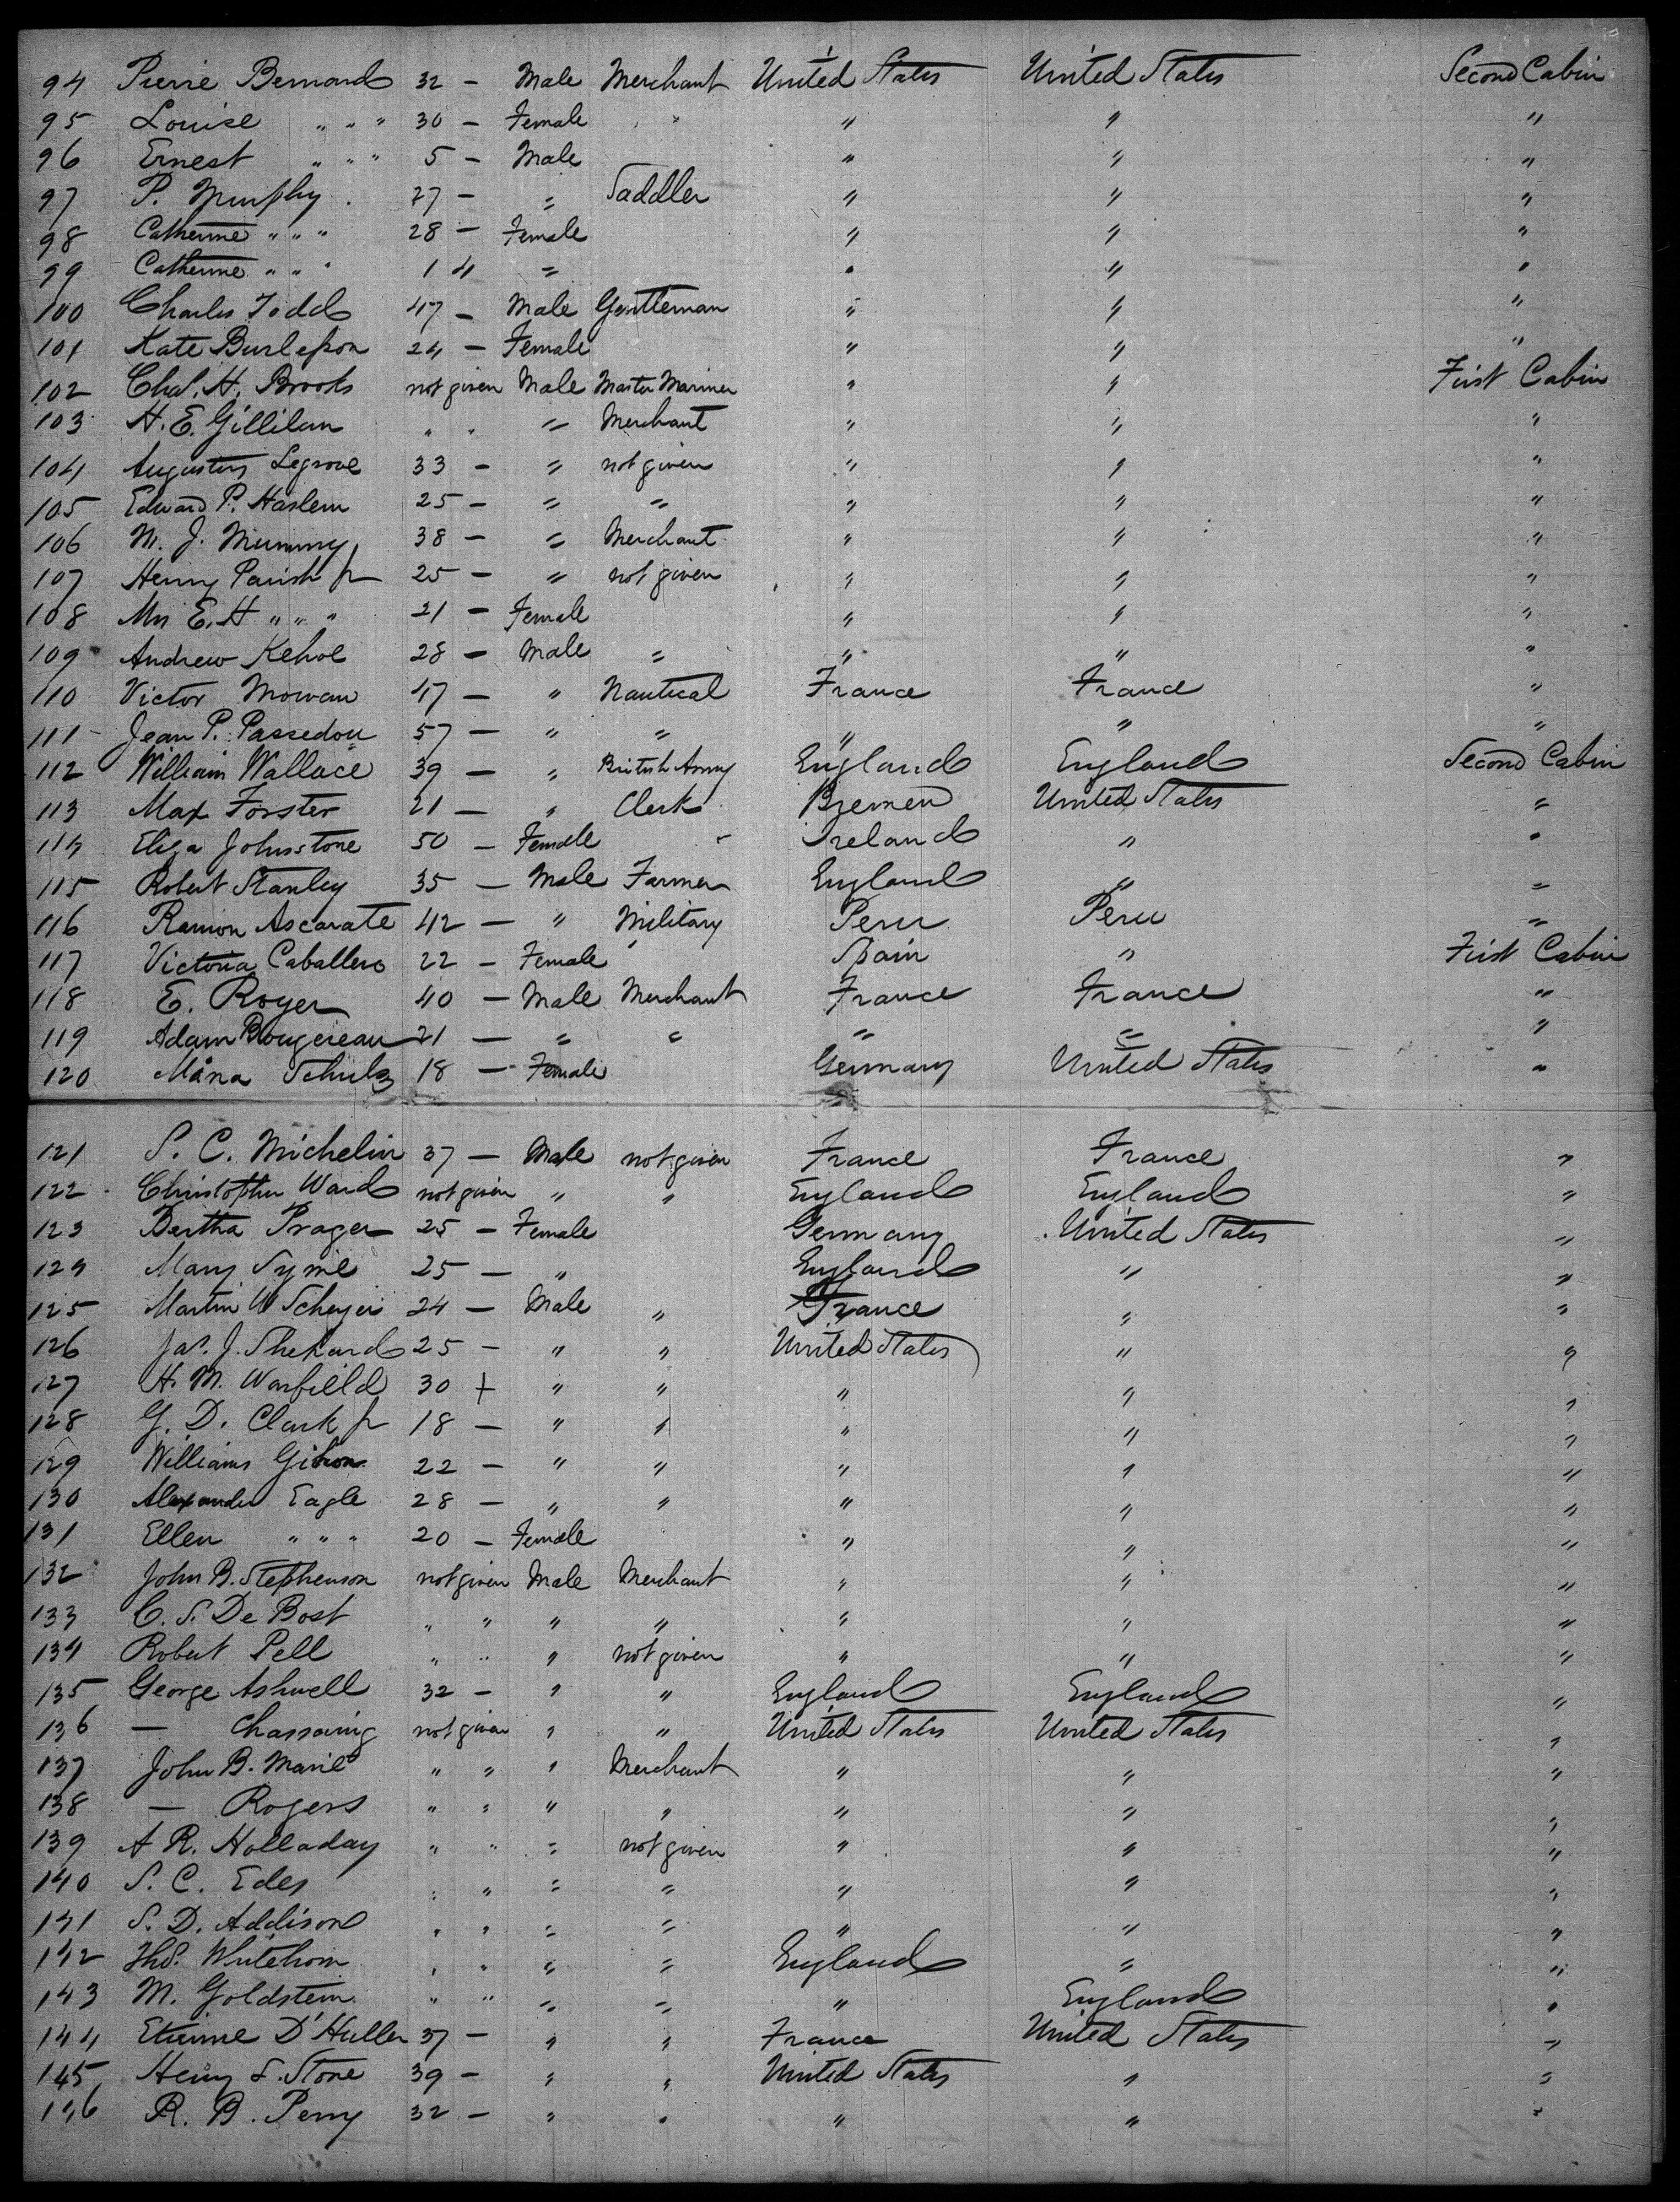 94 Pierre Bernard 32 – Male Merchant United States United States Second Cabin
95 Louise " " " 30 – Female " " "
96 Ernest " " " 5 – Male " " "
97 P. Murphy 27 – " Saddler " " "
98 Catherine " " " 28 – Female " " "
99 Catherine " " " 1 4 " " " "
100 Charles Todd 47 – Male Gentleman " " "
101 Kate Burleson 24 – Female " " "
102 Chas. H. Brooks not given Male Master Mariner " " First Cabin
103 H. E. Gillilan " " " Merchant " " "
104 Augustus Legrove 33 – " not given " " "
105 Edward P. Haslem 25 – " " " " "
106 M. J. Mummy 38 – " Merchant " " "
107 Henry Parish Jr 25 – " not given " " "
108 Mrs E. H " " " 21 – Female " " "
109 Andrew Kehoe 28 – Male " " " "
110 Victor 47 – " Nautical France France "
111 Jean P. Passedou 57 – " " " " "
112 William Wallace 39 – " British Army England England Second Cabin
113 Max Forster 21 – " Clerk Bremen United States "
114 Eliza Johnstone 50 – Female Ireland " "
115 Robert Stanley 35 – Male Farmer England " "
116 Ramon Ascarate 42 – " Military Peru Peru "
117 Victoria Caballero 22 – Female Spain " First Cabin
118 E. Royer 40 – Male Merchant France France "
119 Adam Bougereau 21 – " " " " "
120 Mina Schulz 18 – Female Germany United States "
121 S. C. Michelin 37 – Male not given France France "
122 Christopher Ward not given " " England England "
123 Bertha Prager 25 – Female Germany United States "
124 Mary Syme 25 – " England " "
125 Martin W 24 – Male " France " "
126 Jas. J. 25 – " " United States " "
127 H. M. Warfield 30 + " " " " "
128 G. D. Clark Jr 18 – " " " " "
129 Williams Gihon 22 – " " " " "
130 Alexander Eagle 28 – " " " " "
131 Ellen " " " 20 – Female " " "
132 John B. Stephenson not given Male Merchant " " "
133 C. S. De Bost " " " " " " "
134 Robert Pell " " " not given " " "
135 George Ashwell 32 – " " England England "
136 — Chassaing not given " " United States United States "
137 John B. Marie " " " Merchant " " "
138 — Rogers " " " " " " "
139 A R. Holladay " " " not given " " "
140 S. C. Edes " " " " " " "
141 S. D. Addison " " " " " " "
142 Thos. Whitehorn " " " " England " "
143 M. Goldstein " " " " " England "
144 Etienne D'Huller 37 – " " France United States "
145 Henry S. Stone 39 – " " United States " "
146 R. B. Perry 32 – " " " " "